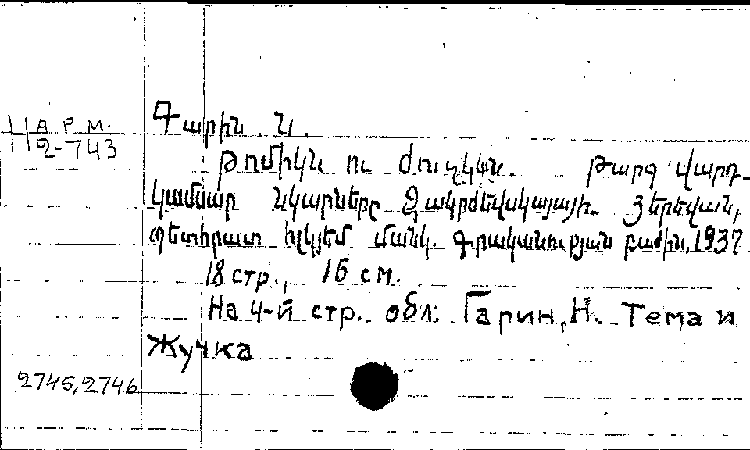 Գարին Ն.
АРМ.
2-743
Թոմիկն ու Ժուչկան. Թարգ Վարդ-
կամսար Նկարները Զակրժեվսկայայի. Յերեվան,
Պետհրատ Մանկ. Գրականության բաժին, 1937
18 стр., 16 см.
На 4-й стр. обл: Гарин, Н. Тема и
Жучка
2745, 2746